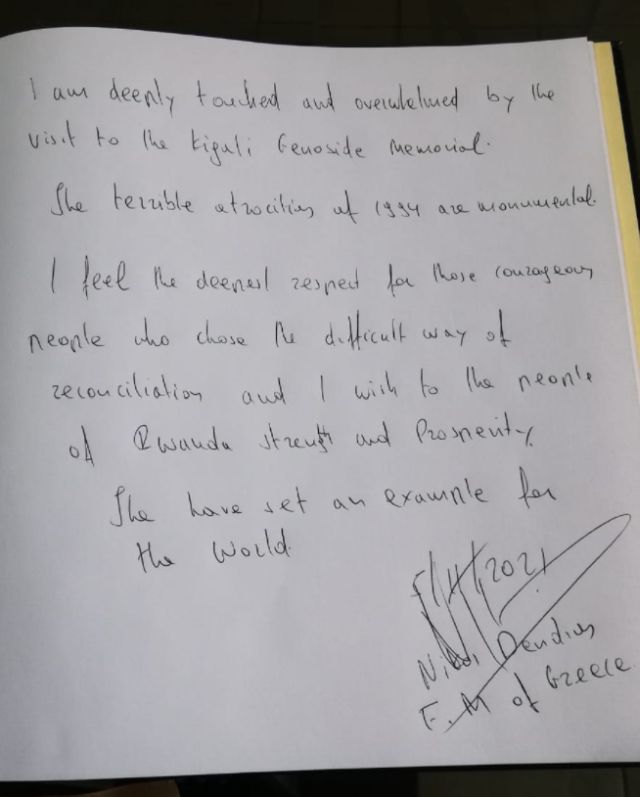 I am deeply touched and overwhelmed by the
visit to the Kigali Genoside Memorial.
The terrible atrocities of 1994 are monumental.
I feel the deepest respect for those courageous
people who chose the difficult way of
reconciliation and I wish to the people
of Rwanda strength and Prosperity,
She have set an example for
the World.
2021
Nikos Dendias
F.M of Greece